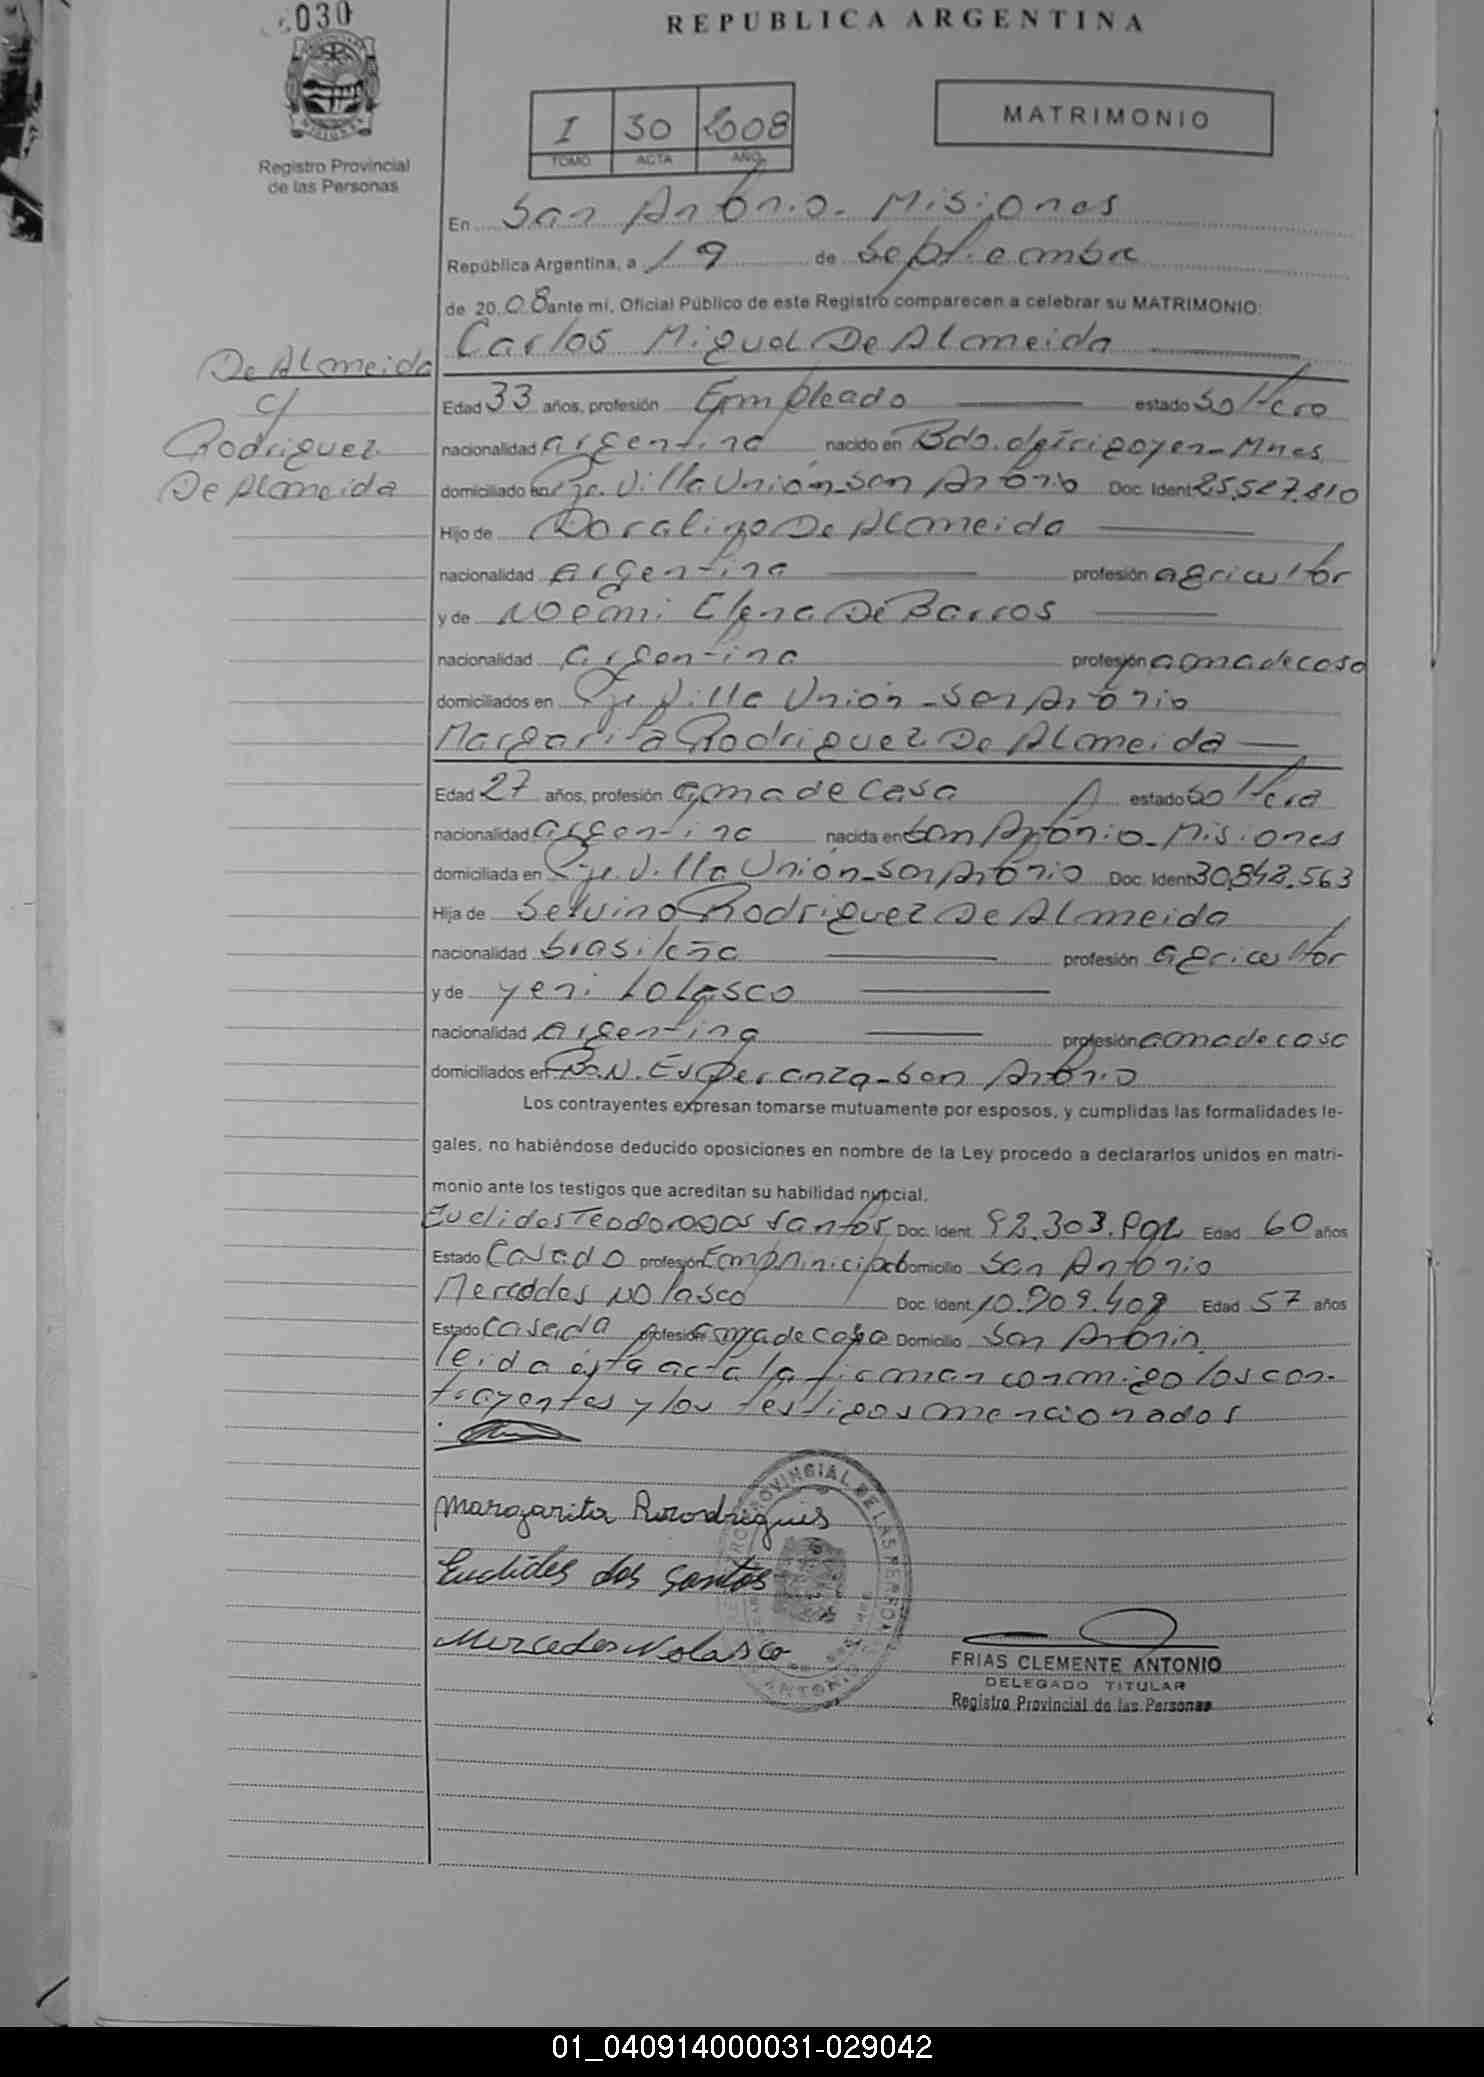 030
REPUBLICA ARGENTINA
Registro Provincial
de las Personas
I 30 2008
TOMO ACTA AÑO
MATRIMONIO
En San Antonio - Misiones
República Argentina, a 19 de Septiembre
de 2008 ante mí, Oficial Público de este Registro comparecen a celebrar su MATRIMONIO:
Carlos Miguel De Almeida
De Almeida
c/
Rodriguez
De Almeida
Edad 33 años, profesión Empleado estado Soltero
nacionalidad argentina nacido en Bdo. de Irigoyen - Mnes
domiciliado en Pje. Villa Unión - San Antonio Doc. Ident. 25.527.810
Hijo de Doralizo De Almeida
nacionalidad argentina profesión agricultor
y de Noemi Elena De Barros
nacionalidad argentina profesión ama de casa
domiciliados en Pje. Villa Unión - San Antonio
Margarita Rodriguez De Almeida
Edad 27 años, profesión ama de casa estado Soltera
nacionalidad argentina nacida en San Antonio - Misiones
domiciliada en Pje. Villa Unión - San Antonio Doc. Ident. 30.848.563
Hija de Seluino Rodriguez De Almeida
nacionalidad brasileña profesión agricultor
y de Yeni Lolasco
nacionalidad argentina profesión ama de casa
domiciliados en B° N. Esperanza - San Antonio
Los contrayentes expresan tomarse mutuamente por esposos, y cumplidas las formalidades le-
gales, no habiéndose deducido oposiciones en nombre de la Ley procedo a declararlos unidos en matri-
monio ante los testigos que acreditan su habilidad nupcial.
Euclides Teodoro Dos Santos Doc. Ident. 92.303. Edad 60 años
Estado Casado profesión Domicilio San Antonio
Mercedes Nolasco Doc. Ident. 10.909.409 Edad 57 años
Estado Casada profesión ama de casa Domicilio San Antonio
leida ésta acta la firman conmigo los con-
trayentes y los testigos mencionados
Margarita Rrodrigues
Euclides dos Santos
Mercedes Nolasco
FRIAS CLEMENTE ANTONIO
DELEGADO TITULAR
Registro Provincial de las Personas
01_040914000031-029042